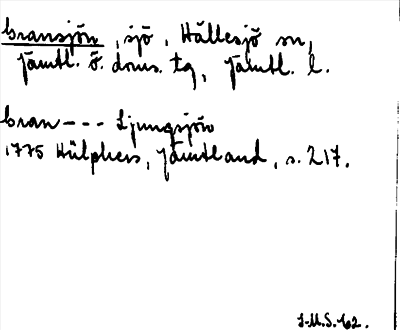 bransjön, sjö, Hällesjö sn,
Jämtl. ö. doms. tg, Jämtl. l.
bran --- Ljungsjön
1775 Hülphers, Jämtland, s. 217.
J-M.S. 62.